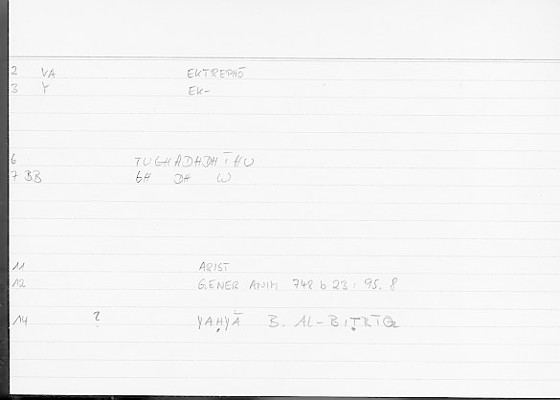 2 VA EKTREPHŌ
3 Y EK-
6 TUGHADHDHĪHU
7 BB GH DH W
11 ARIST
12 GENER ANIM 748 b 23 : 95, 8
14 ? YAḤYĀ B. AL-BIṬRĪQ